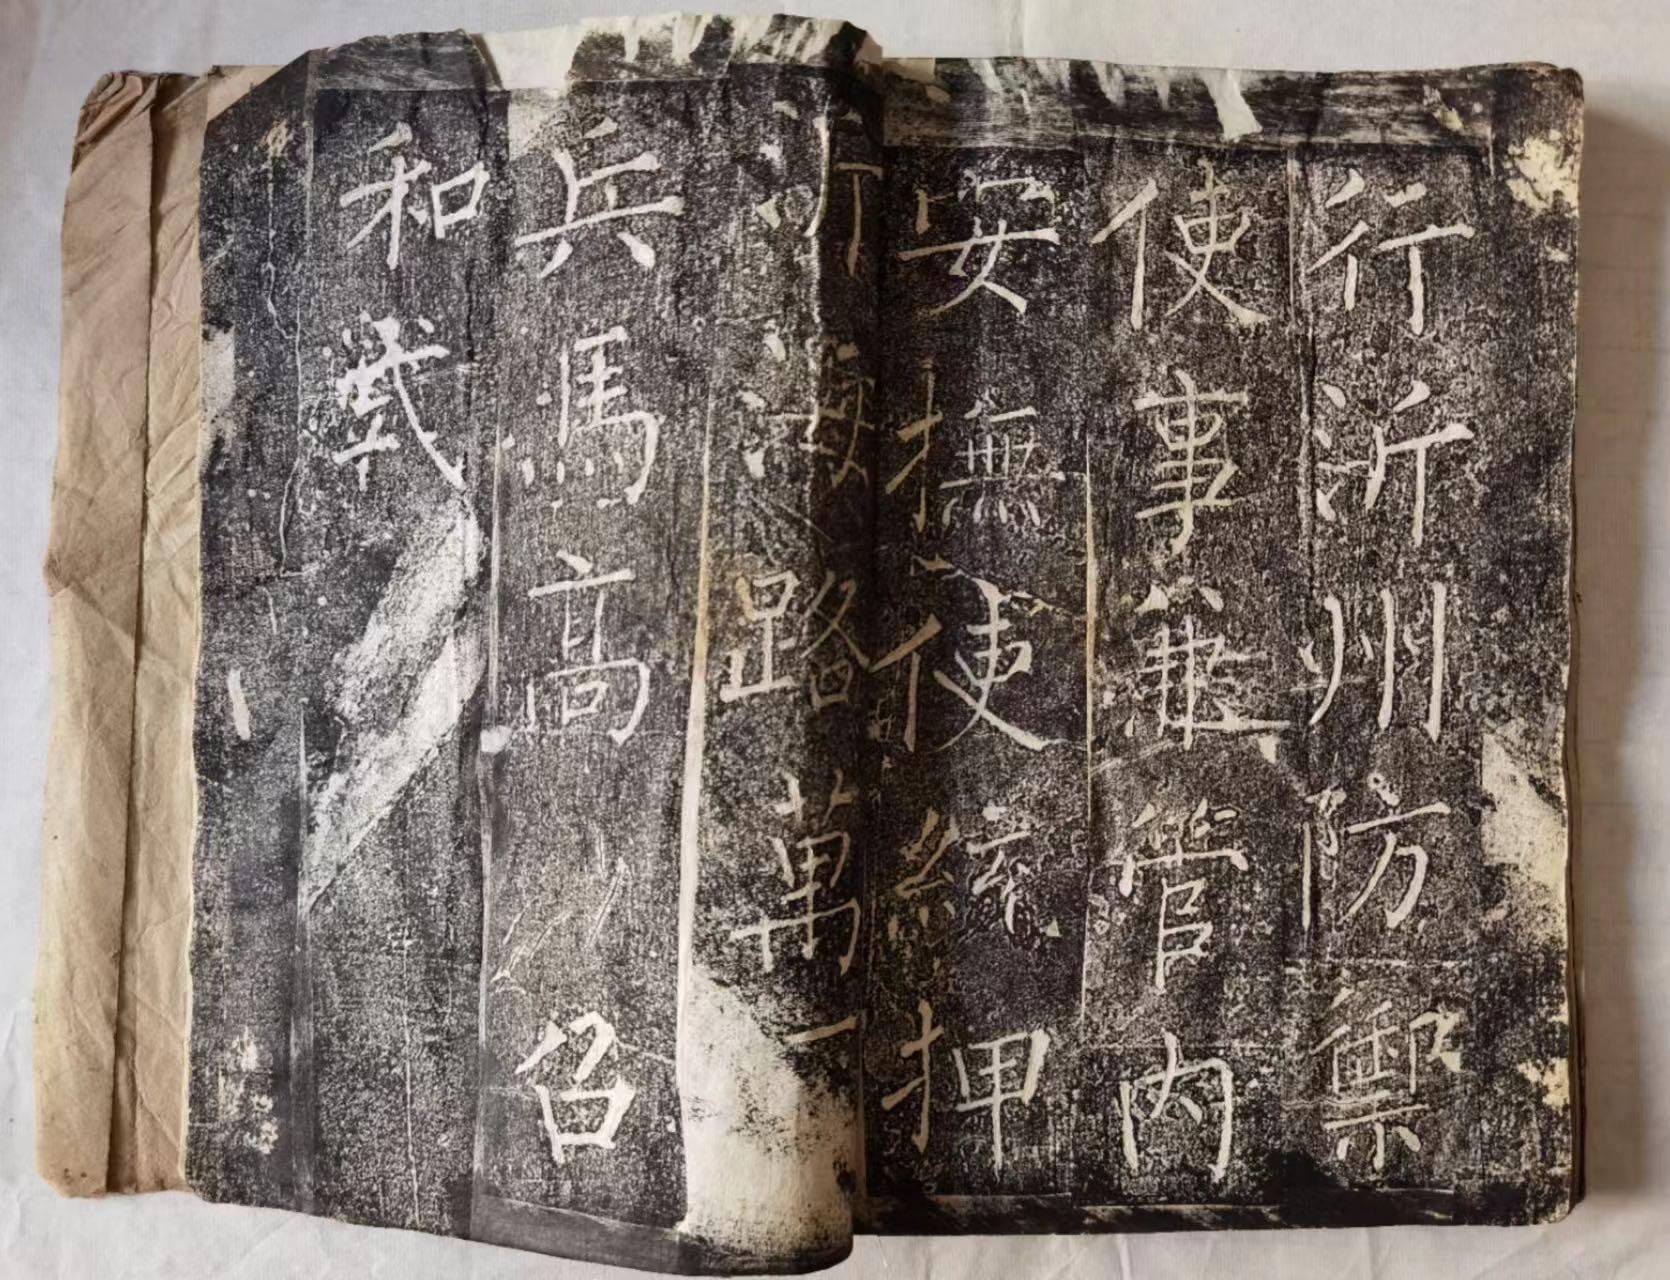 行沂州防禦
使事兼管內
安撫使統押
沂海路萬
兵馬高召
和